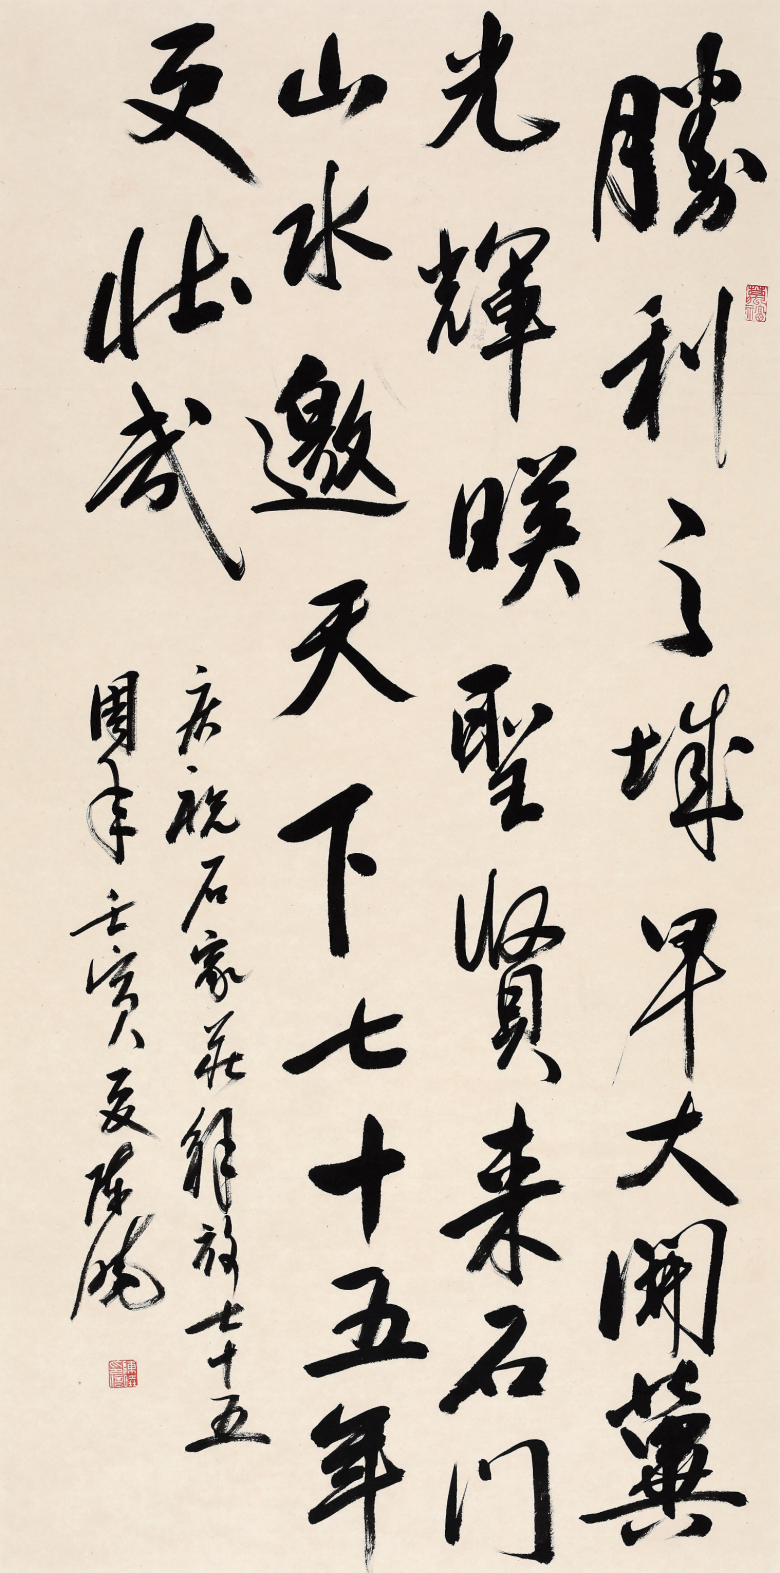 勝利之城早大開冀
光輝暎聖賢来石門
山水邀天下七十五年
更壮哉
庆祝石家莊解放七十五
周年壬寅夏陈